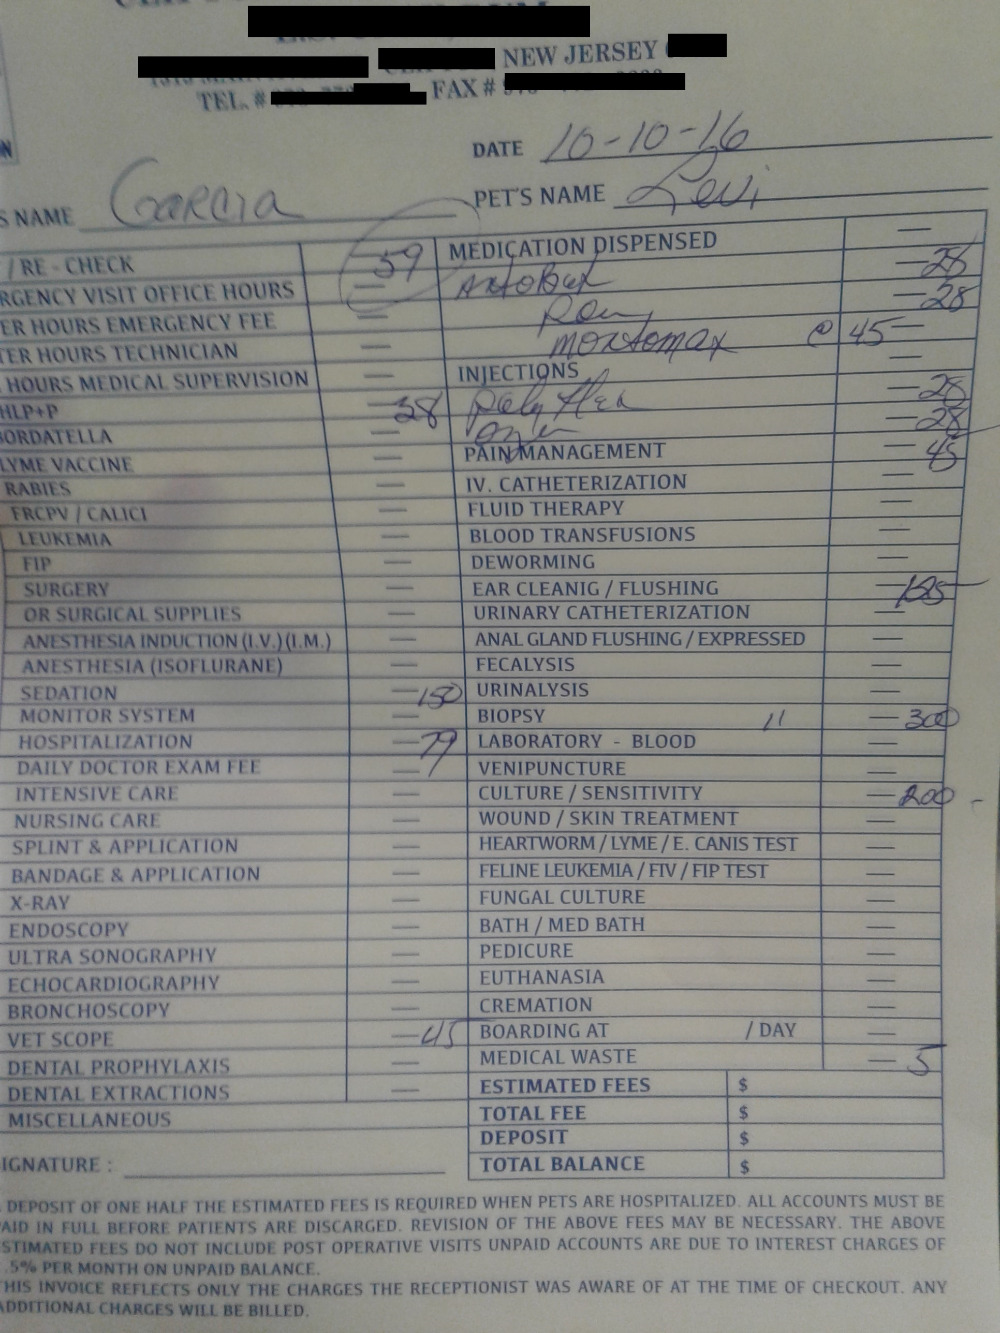 NEW JERSEY
TEL. # FAX #
DATE 10-10-16
S NAME Garcia PET'S NAME Levi
/ RE - CHECK 59
RGENCY VISIT OFFICE HOURS
ER HOURS EMERGENCY FEE
TER HOURS TECHNICIAN
HOURS MEDICAL SUPERVISION
HLP+P 38
BORDATELLA
LYME VACCINE
RABIES
FRCPV / CALICI
LEUKEMIA
FIP
SURGERY
OR SURGICAL SUPPLIES
ANESTHESIA INDUCTION (I.V.) (I.M.)
ANESTHESIA (ISOFLURANE)
SEDATION 150
MONITOR SYSTEM
HOSPITALIZATION 79
DAILY DOCTOR EXAM FEE
INTENSIVE CARE
NURSING CARE
SPLINT & APPLICATION
BANDAGE & APPLICATION
X-RAY
ENDOSCOPY
ULTRA SONOGRAPHY
ECHOCARDIOGRAPHY
BRONCHOSCOPY
VET SCOPE 45
DENTAL PROPHYLAXIS
DENTAL EXTRACTIONS
MISCELLANEOUS
IGNATURE :
MEDICATION DISPENSED
28
28
@ 45
INJECTIONS
28
28
PAIN MANAGEMENT 45
IV. CATHETERIZATION
FLUID THERAPY
BLOOD TRANSFUSIONS
DEWORMING
EAR CLEANIG / FLUSHING
URINARY CATHETERIZATION
ANAL GLAND FLUSHING / EXPRESSED
FECALYSIS
URINALYSIS
BIOPSY 11 300
LABORATORY - BLOOD
VENIPUNCTURE
CULTURE / SENSITIVITY 200 -
WOUND / SKIN TREATMENT
HEARTWORM / LYME / E. CANIS TEST
FELINE LEUKEMIA / FIV / FIP TEST
FUNGAL CULTURE
BATH / MED BATH
PEDICURE
EUTHANASIA
CREMATION
BOARDING AT / DAY
MEDICAL WASTE 5
ESTIMATED FEES $
TOTAL FEE $
DEPOSIT $
TOTAL BALANCE $
DEPOSIT OF ONE HALF THE ESTIMATED FEES IS REQUIRED WHEN PETS ARE HOSPITALIZED. ALL ACCOUNTS MUST BE
AID IN FULL BEFORE PATIENTS ARE DISCARGED. REVISION OF THE ABOVE FEES MAY BE NECESSARY. THE ABOVE
STIMATED FEES DO NOT INCLUDE POST OPERATIVE VISITS UNPAID ACCOUNTS ARE DUE TO INTEREST CHARGES OF
.5% PER MONTH ON UNPAID BALANCE.
HIS INVOICE REFLECTS ONLY THE CHARGES THE RECEPTIONIST WAS AWARE OF AT THE TIME OF CHECKOUT. ANY
ADDITIONAL CHARGES WILL BE BILLED.